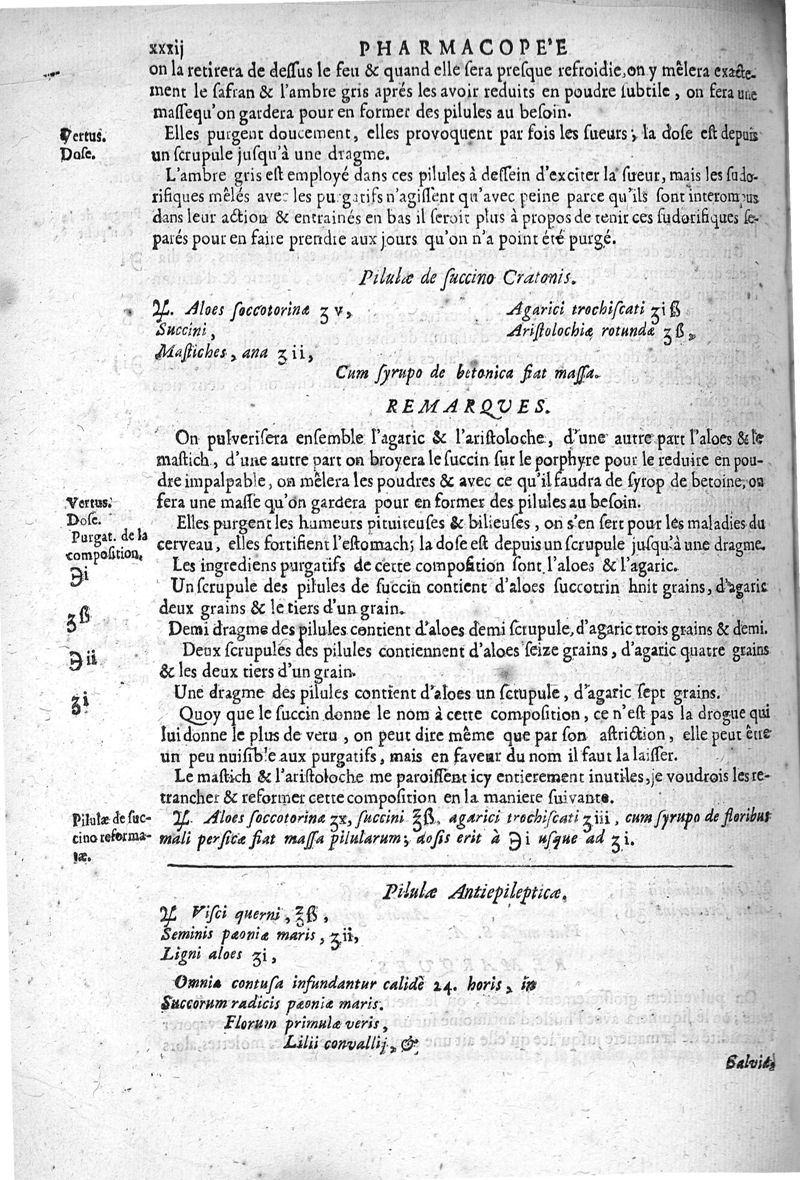 xxxij PHARMACOPE'E
on la retirera de dessus le feu & quand elle sera presque refroidie, on y mêlera exacte-
ment le safran & l'ambre gris aprés les avoir reduits en poudre subtile, on fera une
masse qu'on gardera pour en former des pilules au besoin.
Vertus.
Elles purgent doucement, elles provoquent par fois les sueurs; la dose est depuis
Dose.
un scrupule jusqu'à une dragme.
L'ambre gris est employé dans ces pilules à dessein d'exciter la sueur, mais les sudo-
rifiques mêlés avec les purgatifs n'agissent qu'avec peine parce qu'ils sont interompus
dans leur action & entrainés en bas il seroit plus à propos de tenir ces sudorifiques se-
parés pour en faire prendre aux jours qu'on n'a point été purgé.
Pilulæ de succino Cratonis.
℞. Aloes soccotorinæ ʒ v,
Succini,
Mastiches, ana ʒ ii,
Agarici trochiscati ʒi ß
Aristolochiæ rotundæ ʒ ß,
Cum syrupo de betonica fiat massa.
REMARQUES.
On pulverisera ensemble l'agaric & l'aristoloche, d'une autre part l'aloes & le
mastich, d'une autre part on broyera le succin sur le porphyre pour le reduire en pou-
dre impalpable, on mêlera les poudres & avec ce qu'il faudra de syrop de betoine, on
Vertus.
fera une masse qu'on gardera pour en former des pilules au besoin.
Dose.
Elles purgent les humeurs pituiteuses & bilieuses, on s'en sert pour les maladies du
Purgat. de la
composition.
cerveau, elles fortifient l'estomach; la dose est depuis un scrupule jusqu'à une dragme.
Les ingrediens purgatifs de cette composition sont l'aloes & l'agaric.
℈i
Un scrupule des pilules de succin contient d'aloes succotrin hnit grains, d'agaric
deux grains & le tiers d'un grain.
ʒß
Demi dragme des pilules contient d'aloes demi scrupule, d'agaric trois grains & demi.
℈ii
Deux scrupules des pilules contiennent d'aloes seize grains, d'agaric quatre grains
& les deux tiers d'un grain.
ʒi
Une dragme des pilules contient d'aloes un scrupule, d'agaric sept grains.
Quoy que le succin donne le nom à cette composition, ce n'est pas la drogue qui
lui donne le plus de veru, on peut dire même que par son astriction, elle peut être
un peu nuisible aux purgatifs, mais en faveur du nom il faut la laisser.
Le mastich & l'aristoloche me paroissent icy entierement inutiles, je voudrois les re-
trancher & reformer cette composition en la maniere suivante.
Pilulæ de suc-
cino reforma-
tæ.
℞. Aloes soccotorinæ ʒx, succini ℥ß, agarici trochiscati ʒiii, cum syrupo de floribus
mali persicæ fiat massa pilularum; dosis erit à ℈i usque ad ʒi.
Pilulæ Antiepilepticæ.
℞ Visci querni, ℥ß,
Seminis pæoniæ maris, ʒii,
Ligni aloes ʒi,
Omnia contusa infundantur calidè 24. horis, in
Succorum radicis pæoniæ maris.
Florum primulæ veris,
Lilii convallij, &
Salviæ,